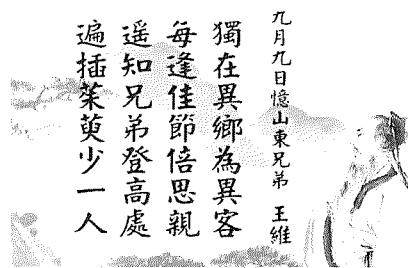 九月九日憶山東兄弟 王維
獨在異鄉為異客
每逢佳節倍思親
遥知兄弟登高處
遍插茱萸少一人